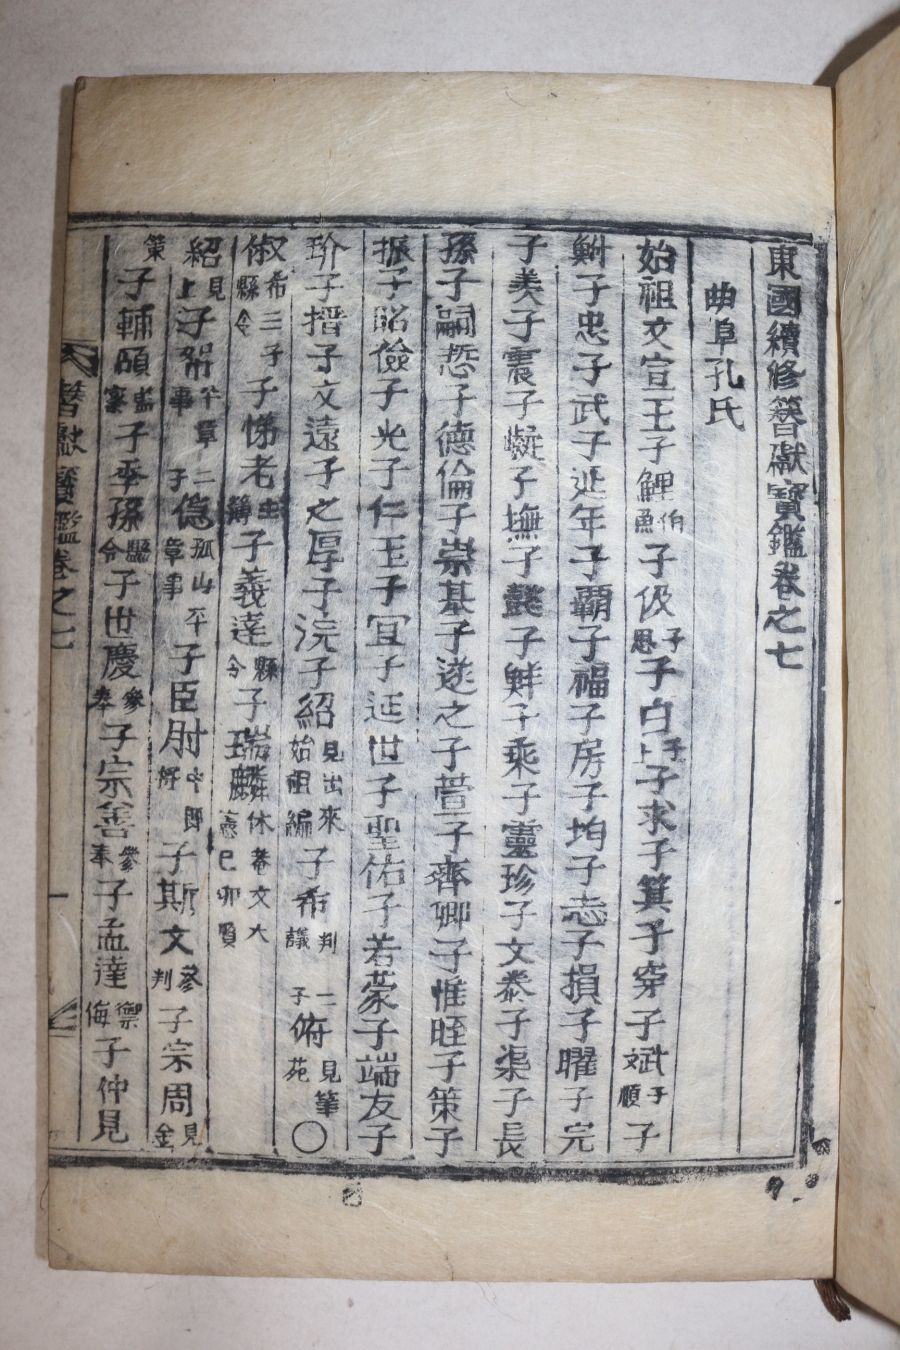 東國續修簪獻寶鑑卷之七
曲阜孔氏
始祖文宣王子鯉伯魚子伋子思子白子上子求子箕子穿子斌子順子
鮒子忠子武子延年子霸子福子房子均子志子損子曜子完
子羨子震子嶷子撫子懿子鮮子乘子靈珍子文泰子渠子長
孫子嗣悊子德倫子崇基子遂之子萱子齊卿子惟晊子策子
振子昭儉子光子仁玉子宜子延世子聖佑子若蒙子端友子
玠子搢子文遠子之厚子浣子紹見出來始祖編子希判議二子俯見筆苑〇
俶希三子縣令子悌老主簿子義達縣令子瑞麟休菴文大憲己卯賢
紹見上子帑平章事二子億孤山平章事子臣肘中郎將子斯文參判子宗周見金
策子輔頤子季孫縣令子世慶參奉子宗善參奉子孟達禦侮子仲見
簪獻寶鑑卷之七 一